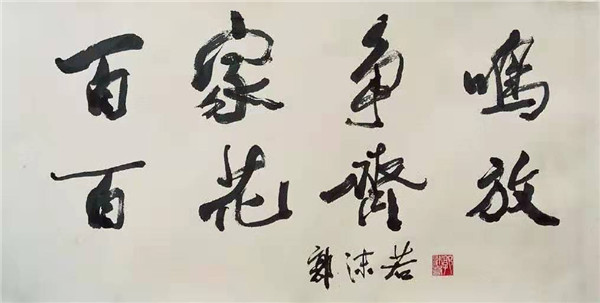 百家争鸣
百花齊放
郭沫若